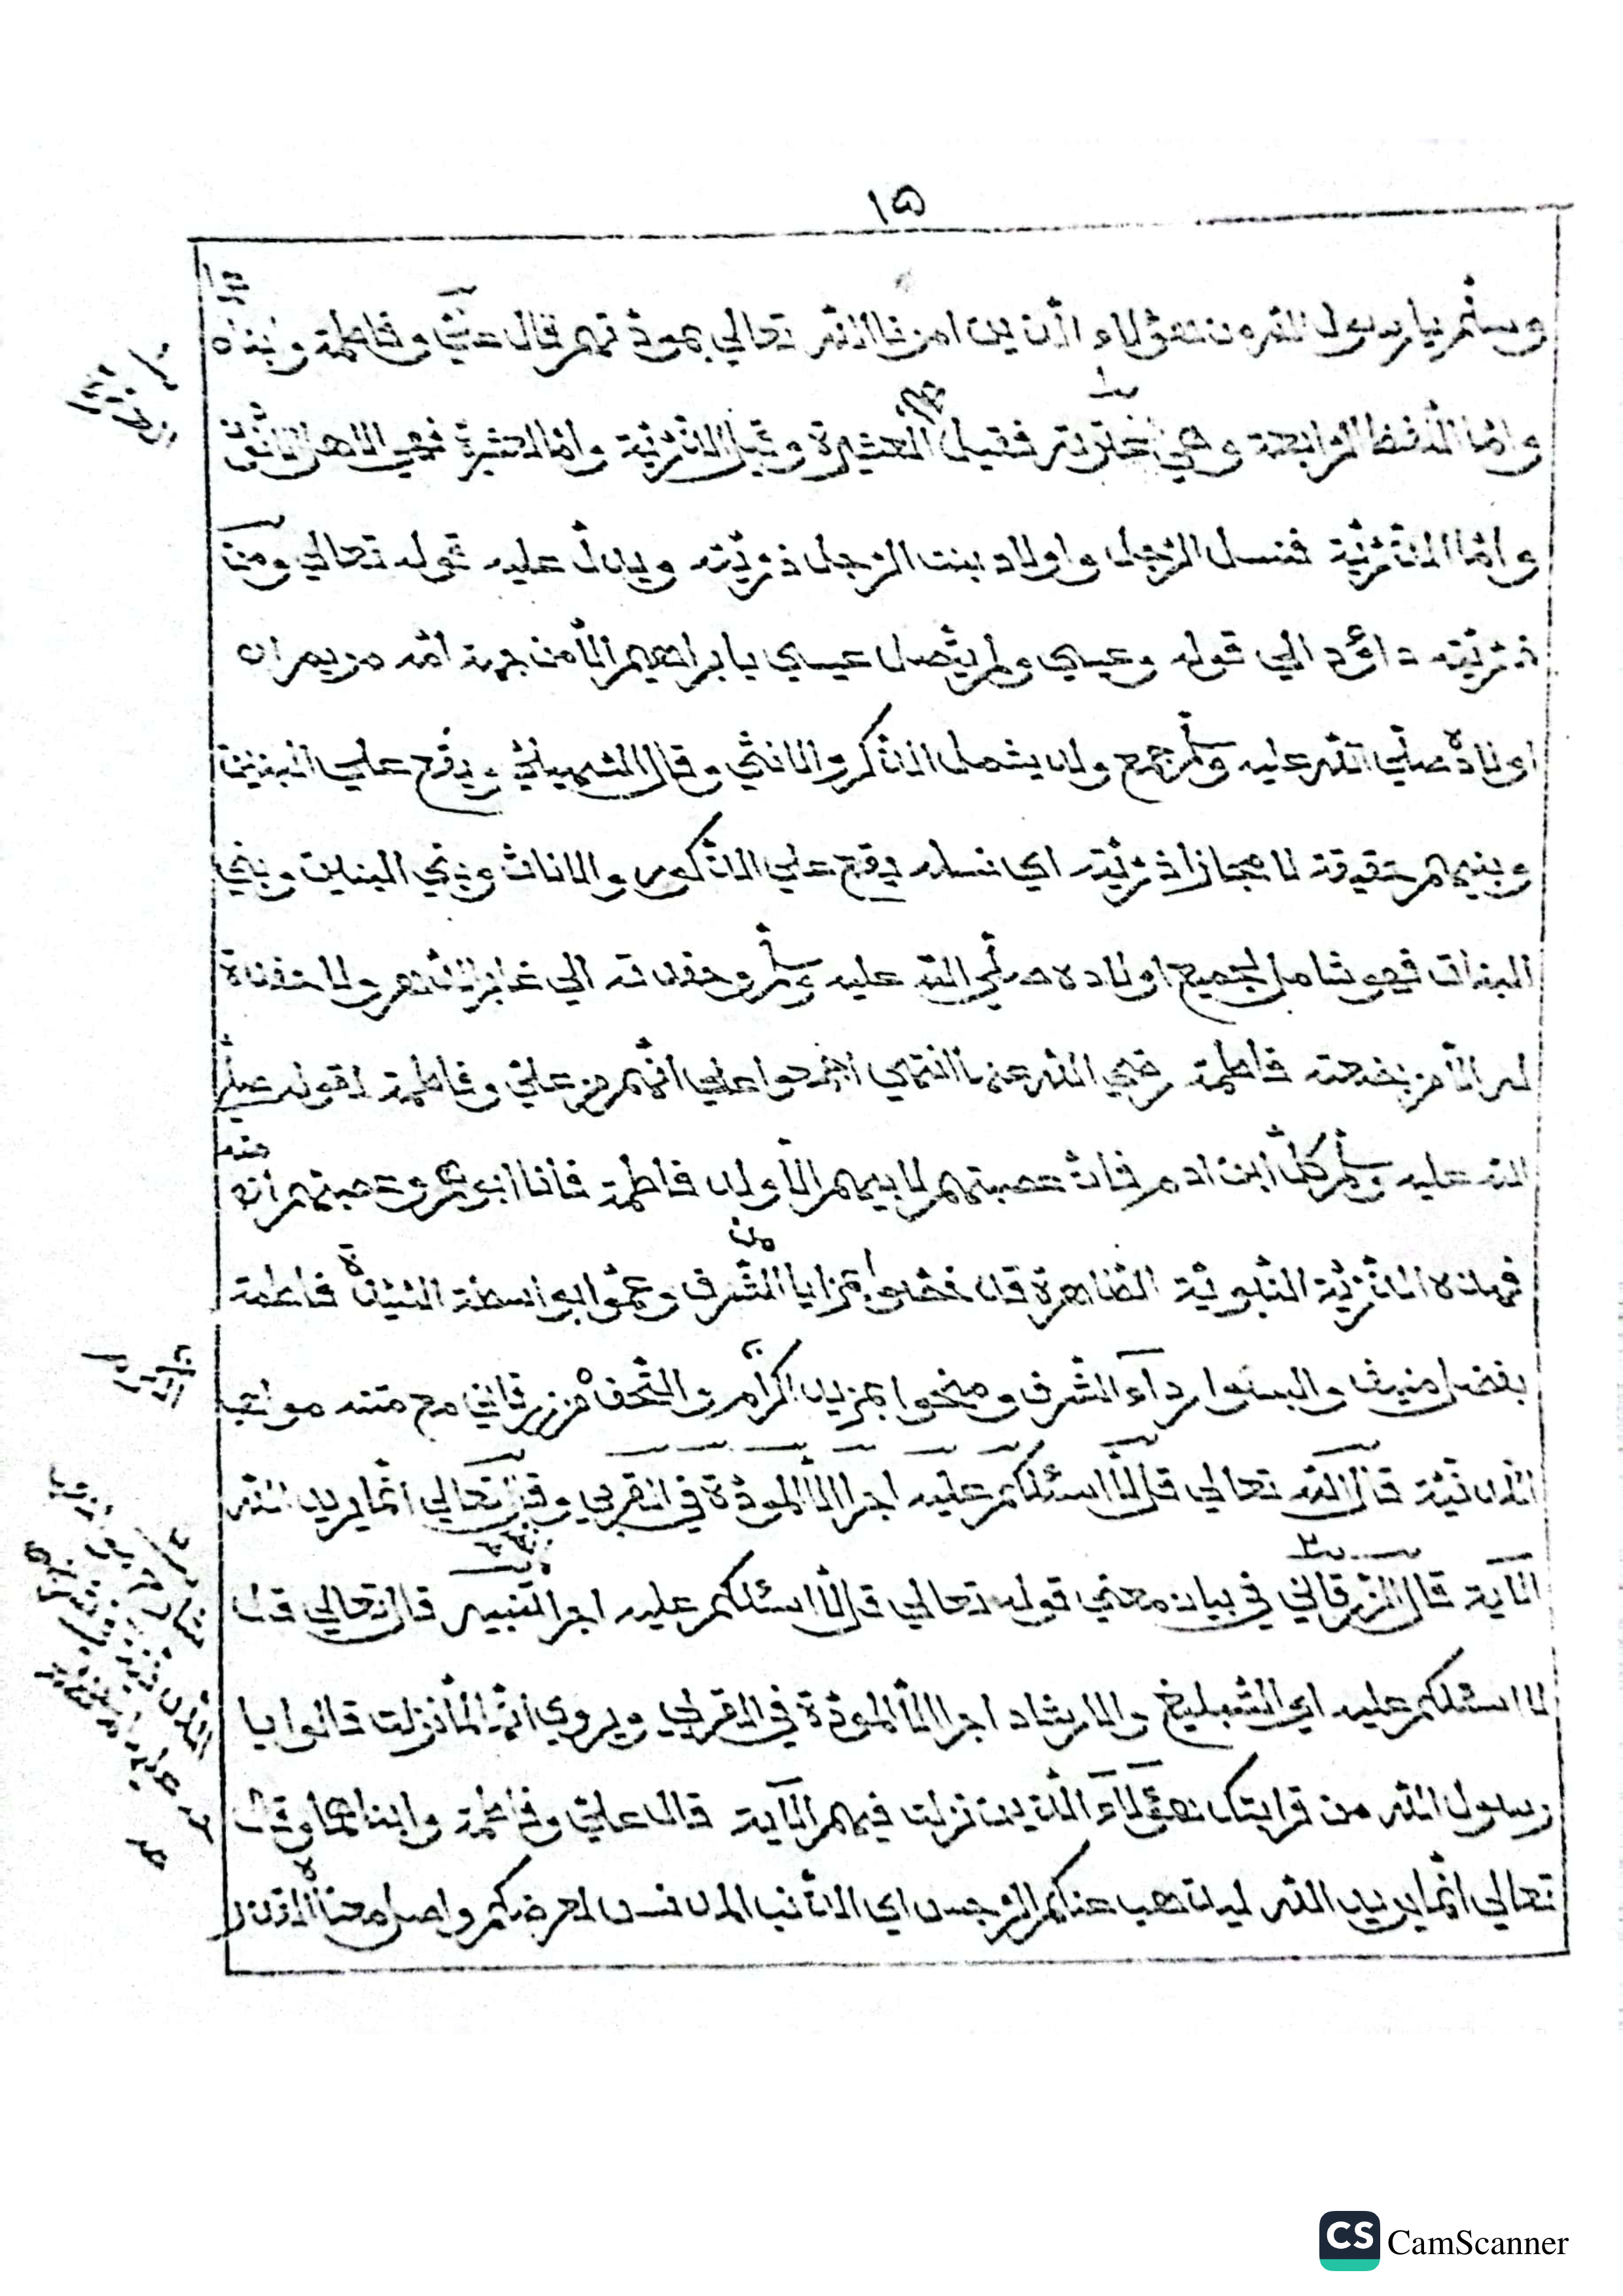 ١٥
وسلّم يا رسول الله من هؤلاء الّذين امرنا الله تعالي بمودّتهم قال عليّ وفاطمة وابناه
وامّا اللّفظ الرابعة وهي عترته فقيل العشيرة وقيل الذّرّيّة وامّا العشيرة فهي الاهل الادنون
وامّا الذّرّيّة فنسل الرّجل واولاد بنت الرّجل ذرّيّته ويدلّ عليه قوله تعالي ومن
ذرّيّته داؤد الي قوله وعيسي ولم يتّصل عيسي بابراهيم الّا من جهة امّه مريم ان
اولاده صلّي الله عليه وسلّم جمع ولد يشمل الذّكر والانثي وقال السّهيليّ ويقع علي البنين
وبنيهم حقيقة لا مجازا ذرّيّته اي نسله يقع علي الذّكور والاناث وبني البنين وبني
البنات فهو شامل لجميع اولاده صلّي الله عليه وسلّم وحفدته الي غابر الدّهر ولا حفدة
له الّا من بضعته فاطمة رضي الله عنها انتهي اجمعوا علي انّهم من عليّ وفاطمة لقوله صلّي
الله عليه وسلّم كلّ ابن ادم فانّ عصبتهم لابيهم الّا ولد فاطمة فانا ابوهم وعصبتهم انه
فهذه الذّرّيّة النّبويّة الطّاهرة قد خصّوا بمزايا الشّرف وعمّوا بواسطة السّيّدة فاطمة
بفضل منيف والبسوا رداء الشرف ومنحوا بمزيد اكرام والتّحف من زرقاني مع متنه مواهب
اللّدنّيّة قال الله تعالي قل لّا اسئلكم عليه اجرا الّا المودّة في القربي وقال تعالي انّما يريد الله
الاية قال الزّرقاني في بيان معني قوله تعالي قل لّا اسئلكم عليه اجرا تنبيه قال تعالي قل
لا اسئلكم عليه اي التّبليغ والارشاد اجرا الّا المودّة في القربي ويروي انّها لمّا نزلت قالوا يا
رسول الله من قرابتك هؤلاء الّذين نزلت فيهم الاية قال عليّ وفاطمة وابناهما وقال
تعالي انّما يريد الله ليذهب عنكم الرّجس اي الذّنب المدنس لعرضكم واصل معناه القذر
CS CamScanner